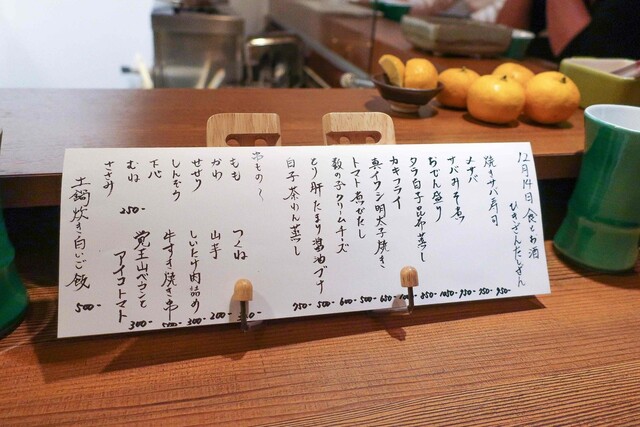 12月14日 食とお酒
ひきざんたしざん
焼きサバ寿司 950-
〆サバ 750-
サバみそ煮 950-
おでん盛り 1050-
タラ白子昆布蒸し 850-
カキフライ
真イワシ明太子焼き 650-
トマト煮びたし 500-
数の子クリームチーズ 600-
とり肝たまり醤油ヅケ 500-
白子茶わん蒸し 750-
串もの〜
もも つくね
かわ 山芋 200-
せせり しいたけ肉詰め 300-
しんぞう 牛すき焼き串 500-
むね 250- 覚王山
ささみ アイコトマト 300-
土鍋炊き白いご飯 500-